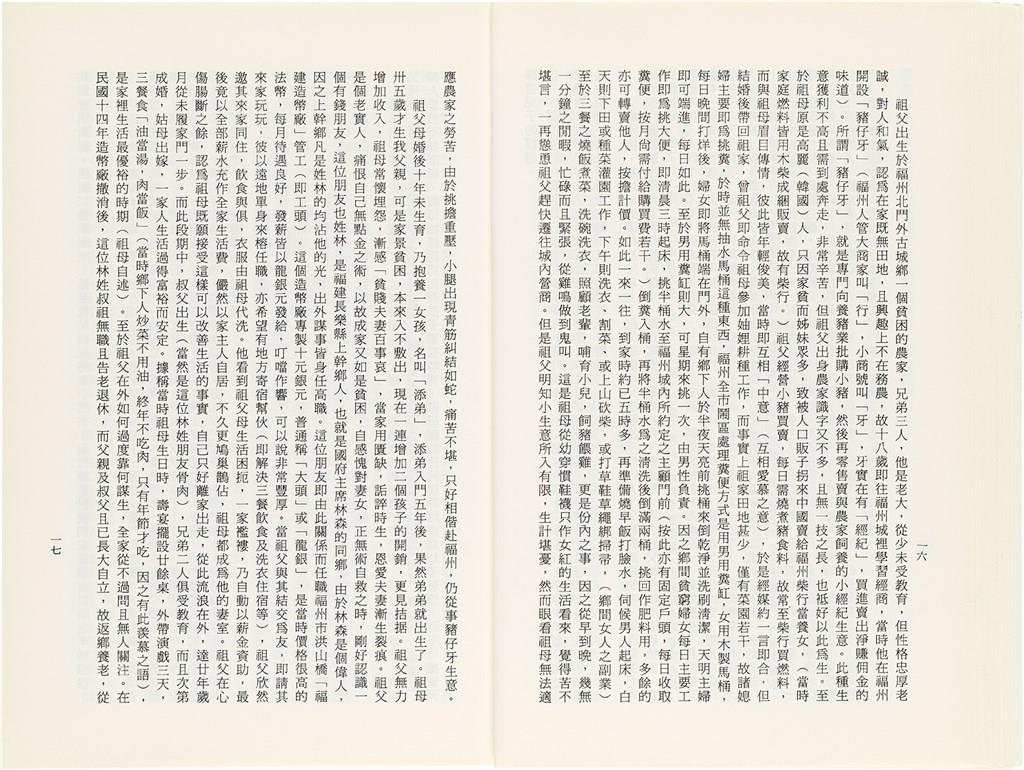 祖父出生於福州北門外古城鄉一個貧困的農家，兄弟三人，他是老大，從少未受教育，但性格忠厚老
誠，對人和氣，認爲在家既無田地，且興趣上不在務農，故十八歲即往福州城裡學習經商，當時他在福州
開設「豬仔牙」（福州人管大商家叫「行」，小商號叫「牙」，牙實在有「經紀」，買進賣出淨賺佣金的
味道）。所謂「豬仔牙」，就是專門向養豬業批購小豬，然後再零售賣與農家飼養的小經紀生意。此種生
意獲利不高且需到處奔走，非常辛苦，但祖父出身農家識字又不多，且無一技之長，也祇好以此爲生。至
於祖母原是高麗（韓國）人，只因家貧而姊妹眾多，致被人口販子拐來中國賣給福州柴行當養女，（當時
家庭燃料皆用木柴成綑販賣，故有柴行。）祖父經營小豬買賣，每日需燒煮豬食料，故常至柴行買燃料，
而與祖母眉目傳情，彼此皆年輕俊美，當時即互相「中意」（互相愛慕之意），於是經媒約一言即合。但
結婚後帶回祖家，曾祖父即命令祖母參加妯娌耕種工作，而事實上祖家田地甚少，僅有菜園若干，故諸媳
婦主要即爲挑糞，於時並無抽水馬桶這種東西，福州全市鬧區處理糞便方式是用男用糞缸，女用木製馬桶，
每日晚間打烊後，婦女即將馬桶端在門外，自有鄉下人於半夜天亮前挑桶來倒乾淨並洗刷清潔，天明主婦
即可端進，每日如此。至於男用糞缸則大，可星期來挑一次，由男性負責。因之鄉間貧窮婦女每日主要工
作即爲挑大便，即清晨三時起床，挑半桶水至福州城內所約定之主顧門前（按此亦有固定戶頭，每日收取
糞便，按月尚需付給購買費若干。）倒糞入桶，再將半桶水爲之清洗後倒滿兩桶，挑回作肥料用，多餘的
亦可轉賣他人，按擔計價。如此一來一往，到家時約已五時多，再準備燒早飯打臉水，伺候男人起床，白
天則下田或種菜灌園工作，下午則洗衣、割菜、或上山砍柴，或打草鞋草繩綁掃帚，（鄉間女人之副業）
至於三餐之燒飯煮菜，洗碗洗衣，照顧老輩，哺育小兒，飼豬餵雞，更是份內之事，因之從早到晚，幾無
一分鐘之閒暇，忙碌而且緊張，從雞鳴做到鬼叫。這是祖母從幼穿慣鞋襪只作女紅的生活看來，覺得苦不
堪言，一再慫恿祖父趕快遷往城內營商。但是祖父明知小生意所入有限，生計堪憂，然而眼看祖母無法適
一六
應農家之勞苦，由於挑擔重壓，小腿出現青筋糾結如蛇，痛苦不堪，只好相偕赴福州，仍從事豬仔牙生意。
祖父母婚後十年未生育，乃抱養一女孩，名叫「添弟」，添弟入門五年後，果然弟弟就出生了。祖母
卅五歲才生我父親，可是家景貧困，本來入不敷出，現在一連增加二個孩子的開銷，更見拮据。祖父無力
增加收入，祖母常懷埋怨，漸感「貧賤夫妻百事哀」，當家用匱缺，詬誶時生，恩愛夫妻漸生裂痕。祖父
是個老實人，痛恨自己無點金之術，以故成家又如是貧困，自感愧對妻女，正無術自救之時，剛好認識一
個有錢朋友，這位朋友也姓林，是福建長樂縣上幹鄉人，也就是國府主席林森的同鄉，由於林森是個偉人，
因之上幹鄉凡是姓林的均沾他的光，出外謀事皆身任高職。這位朋友即由此關係而任職福州市洪山橋「福
建造幣廠」管工（即工頭）。這個造幣廠專製十元銀元，普通稱「大頭」或「龍銀」，是當時價格很高的
法幣，每月待遇良好，發薪皆以龍銀元發給，叮噹作響，可以說非常豐厚。當祖父與其結交爲友，即請其
來家玩玩，彼以遠地單身來榕任職，亦希望有地方寄宿幫伙（即解決三餐飲食及洗衣住宿等），祖父欣然
邀其來家同住，飲食與俱，衣服由祖母代洗。他看到祖父母生活困扼，一家襤褸，乃自動以薪金資助，最
後竟以全部薪水充作全家生活費，儼然以家主人自居，不久更鳩巢鵲佔，祖母都成爲他的妻室。祖父在心
傷腸斷之餘，認爲祖母既願接受這樣可以改善生活的事實，自己只好離家出走，從此流浪在外，達十年歲
月從未履家門一步。而此段期中，叔父出生（當然是這位林姓朋友骨肉）兄弟二人俱受教育，而且次第
成婚，姑母出嫁，一家人生活過得富裕而安定。據稱當時祖母生日時，壽宴擺設廿餘桌，外帶演戲三天，
三餐食「油當湯，肉當飯」（當時鄉下人炒菜不用油，終年不吃肉，只有年節才吃，因之有此羨慕之語），
是家裡生活最優裕的時期（祖母自述）。至於祖父在外如何過度靠何謀生，全家從不過問且無人關注。在
民國十四年造幣廠撤消後，這位林姓叔祖無職且告老退休，而父親及叔父且已長大自立，故返鄉養老，從
一七